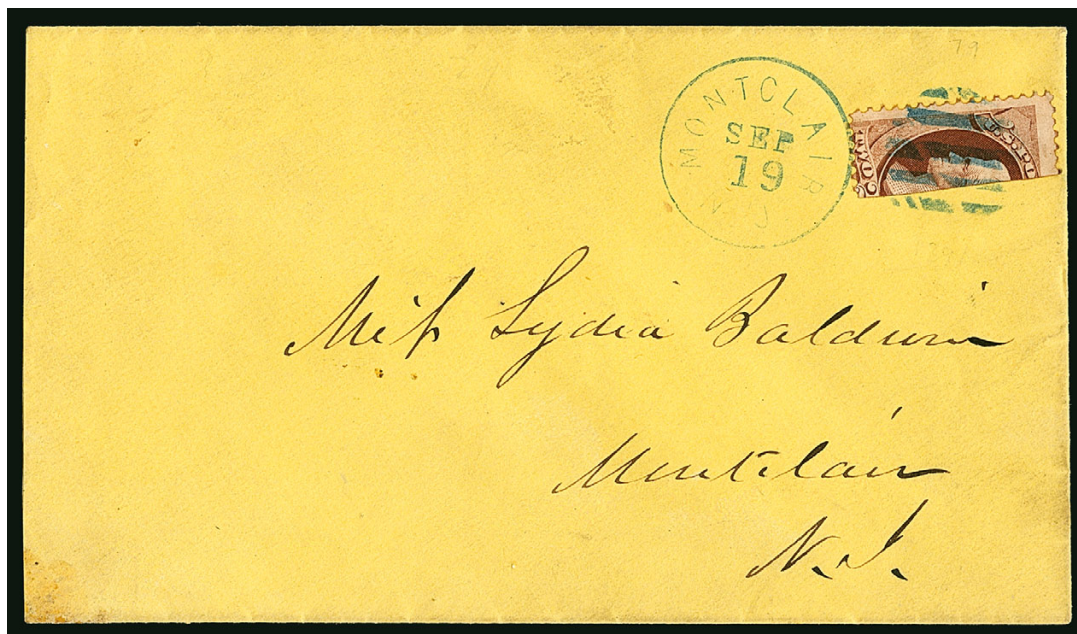 79
MONTCLAIR N.J.
SEP
19
Miss Lydia Baldwin
Montclair
N.J.